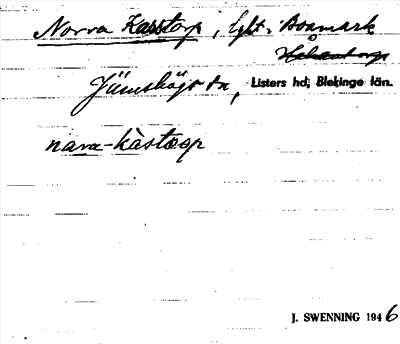 Norra Kasstorp, lght. Boamark
Jämshögs sn, Listers hd, Blekinge län.
nára-kàstoop
J. SWENNING 1946